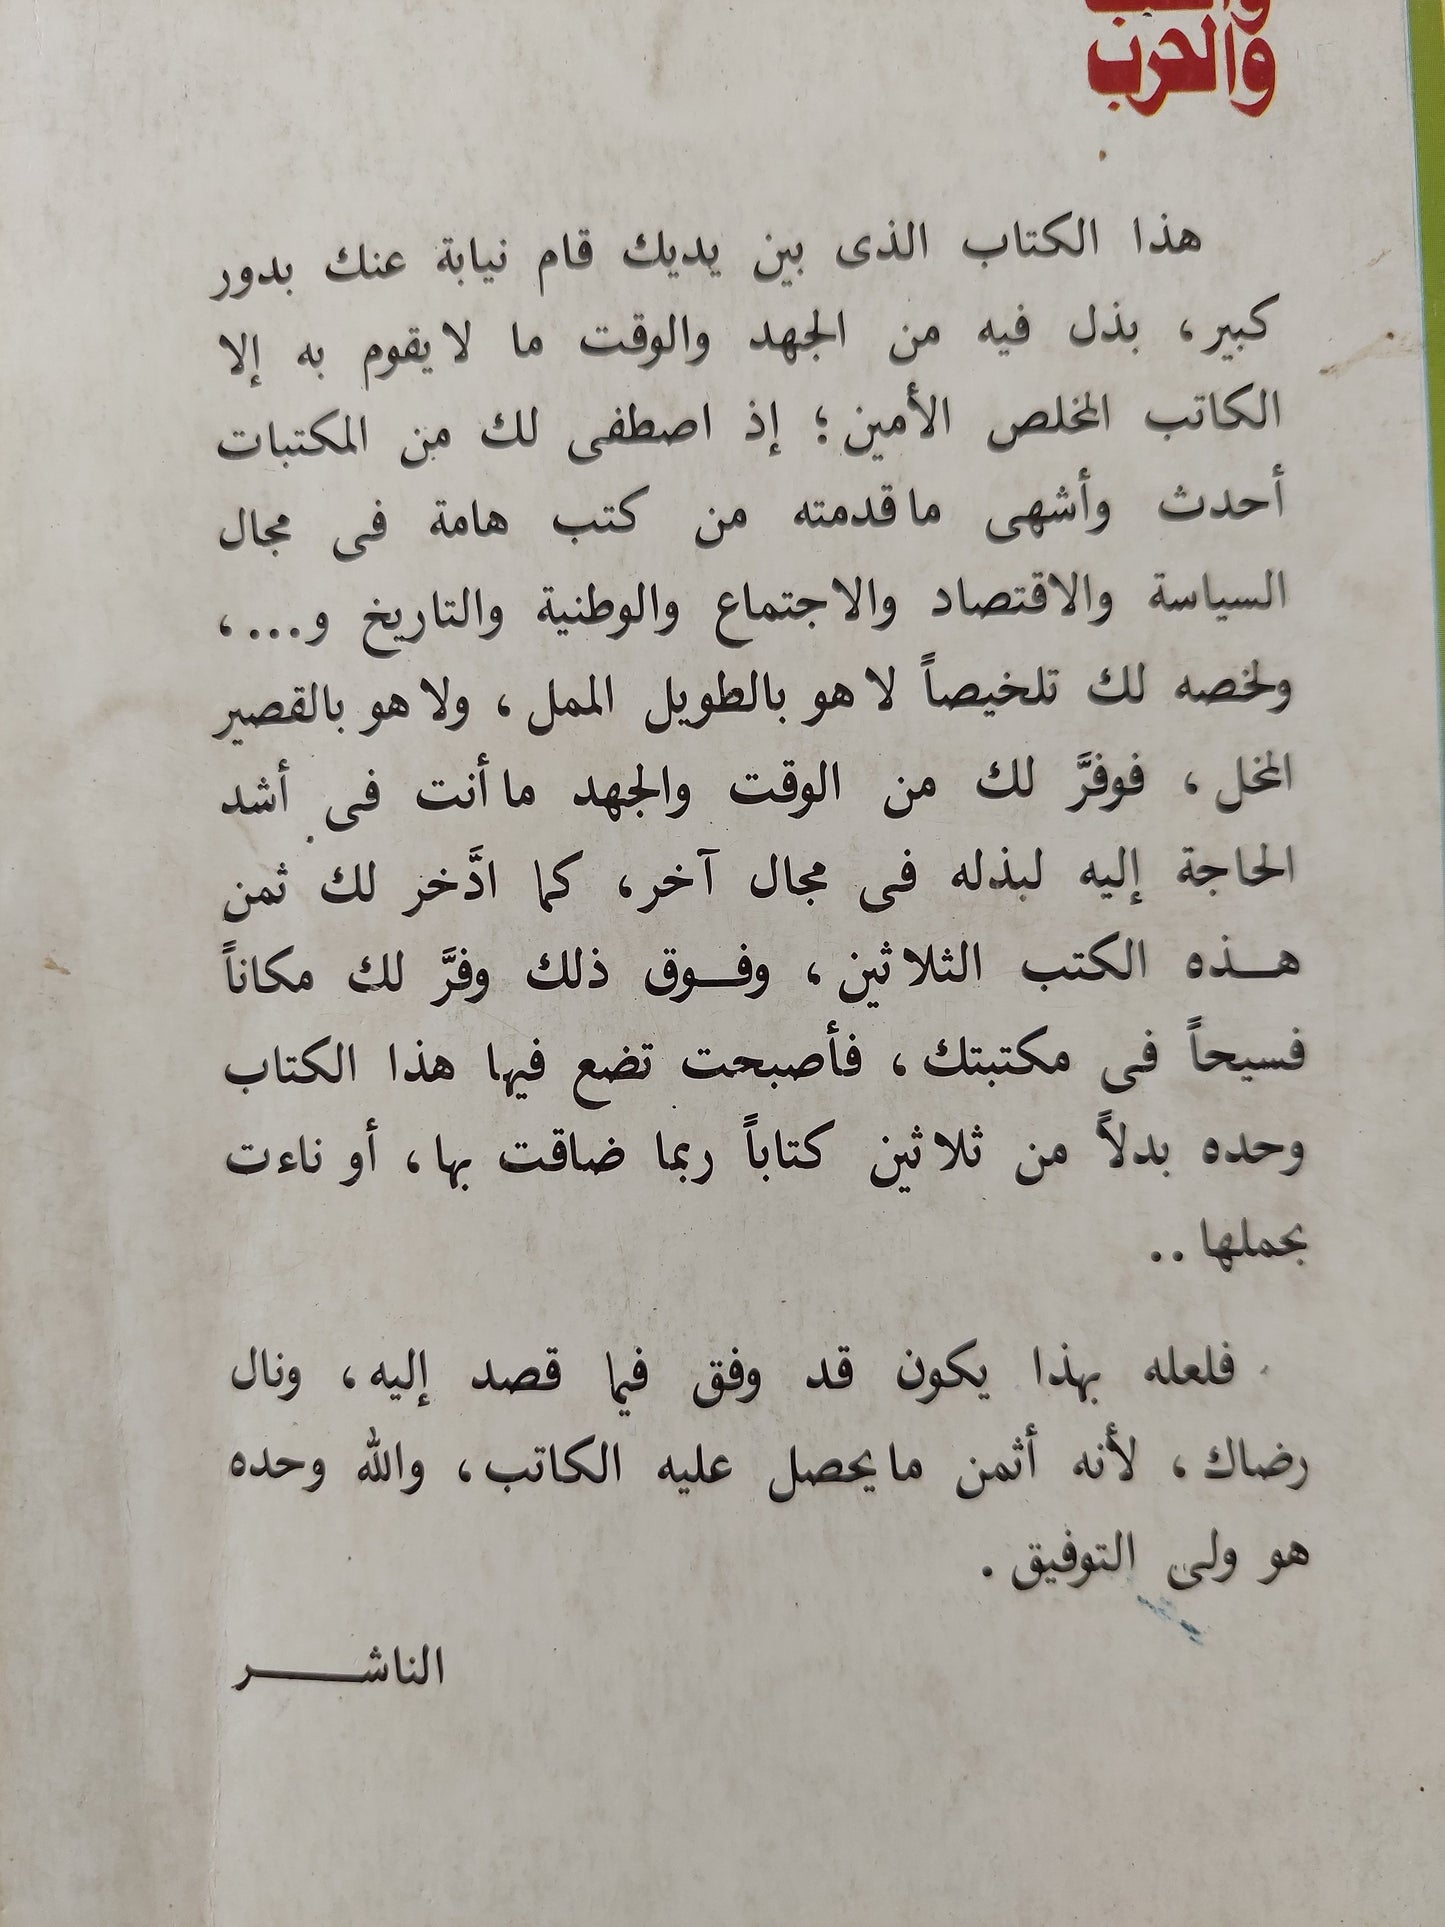 والحرب
هذا الكتاب الذى بين يديك قام نيابة عنك بدور
كبير، بذل فيه من الجهد والوقت ما لا يقوم به إلا
الكاتب المخلص الأمين؛ إذ اصطفى لك من المكتبات
أحدث وأشهى ما قدمته من كتب هامة فى مجال
السياسة والاقتصاد والاجتماع والوطنية والتاريخ و...،
ولخصه لك تلخيصاً لا هو بالطويل الممل، ولا هو بالقصير
المخل، فوفرَّ لك من الوقت والجهد ما أنت فى أشد
الحاجة إليه لبذله فى مجال آخر، كما ادَّخر لك ثمن
هـذه الكتب الثلاثين، وفـوق ذلك وفرَّ لك مكاناً
فسيحاً فى مكتبتك، فأصبحت تضع فيها هذا الكتاب
وحده بدلاً من ثلاثين كتاباً ربما ضاقت بها، أو ناءت
بحملها ..
فلعله بهذا يكون قد وفق فيما قصد إليه، ونال
رضاك، لأنه أثمن ما يحصل عليه الكاتب، والله وحده
هو ولى التوفيق .
الناشـــر